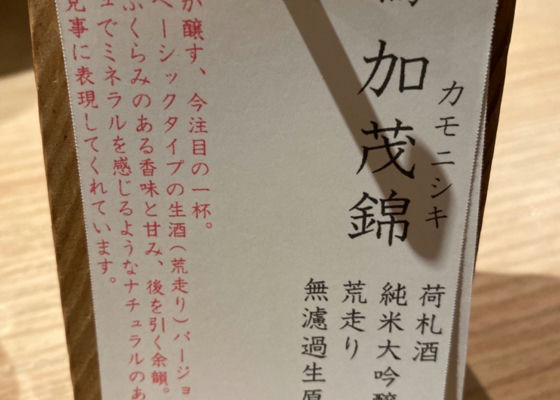 加茂錦
カモニシキ
荷札酒
純米大吟醸
荒走り
無濾過生原
が醸す、今注目の一杯。
ベーシックタイプの生酒(荒走り)バージョ
ふくらみのある香味と甘み、後を引く余韻。
でミネラルを感じるようなナチュラルのあ
見事に表現してくれています。